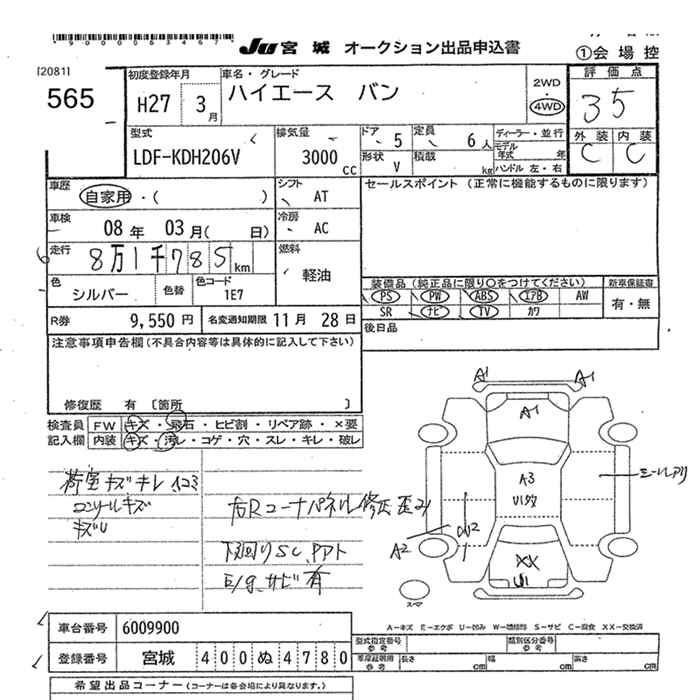 *9000063467*
JU 宮城 オークション出品申込書
①会場控
[2081]
565
初度登録年月
H27 3月
車名・グレード
ハイエース バン
2WD
4WD
評価点
35
外装 内装
C C
型式
LDF-KDH206V
排気量
3000 CC
ドア 5
定員 6人
形状 V
積載 kg
ディーラー・並行
モデル年式 年
ハンドル 左・右
車歴
自家用・( )
シフト AT
セールスポイント (正常に機能するものに限ります)
車検
08年 03月( 日)
冷房 AC
走行
8万1千785km
燃料 軽油
色 シルバー
色替
色コード 1E7
装備品(純正品に限り○をつけてください)
新車保証書
PS PW ABS エアB AW
SR ナビ TV カワ
有・無
R券 9,550円
名変通知期限 11月 28日
後日品
注意事項申告欄(不具合内容等は具体的に記入して下さい)
修復歴 有 〔箇所 〕
検査員記入欄
FW キズ・飛石・ヒビ割・リペア跡・×要
内装 キズ・汚レ・コゲ・穴・スレ・キレ・破レ
荷室キズキレ凹コミ
コンソールキズ
キズU
右Rコーナパネル修正歪み
下回りSC、PPT
E/gサビ有
A1 A1
A1
A3
U1多数
XX
U1
A2
U2
ミラーAアリ
スペア
A-キズ E-エクボ U-凹み W-補修跡 S-サビ C-腐食 XX-交換済
車台番号 6009900
登録番号 宮城 400 ぬ 4780
型式指定番号 参考
類別区分番号 参考
車庫証明用 参考
長さ cm 幅 cm 高さ cm
希望出品コーナー(コーナーは各会場により異なります。)